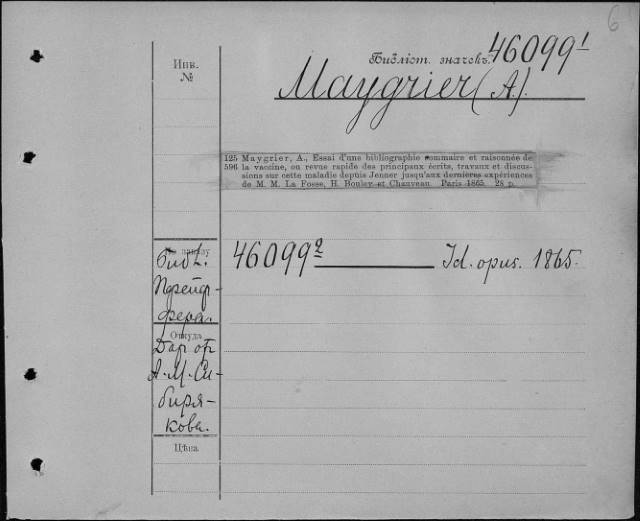 6
Инв.
№
Библіот. значекъ. 46099¹
Maygrier (A.).
125 Maygrier, A., Essai d'une bibliographie sommaire et raisonnée de
596 la vaccine, ou revue rapide des principaux écrits, travaux et discus-
sions sur cette maladie depuis Jenner jusqu'aux dernières expériences
de M. M. La Fosse, H. Bouley et Chauveau. Paris 1865. 28 p.
Библ. 46099² Id. opus. 1865.
Пфейф-
фера.
Откуда
Дар от
А. М. Си-
биря-
кова.
Цѣна